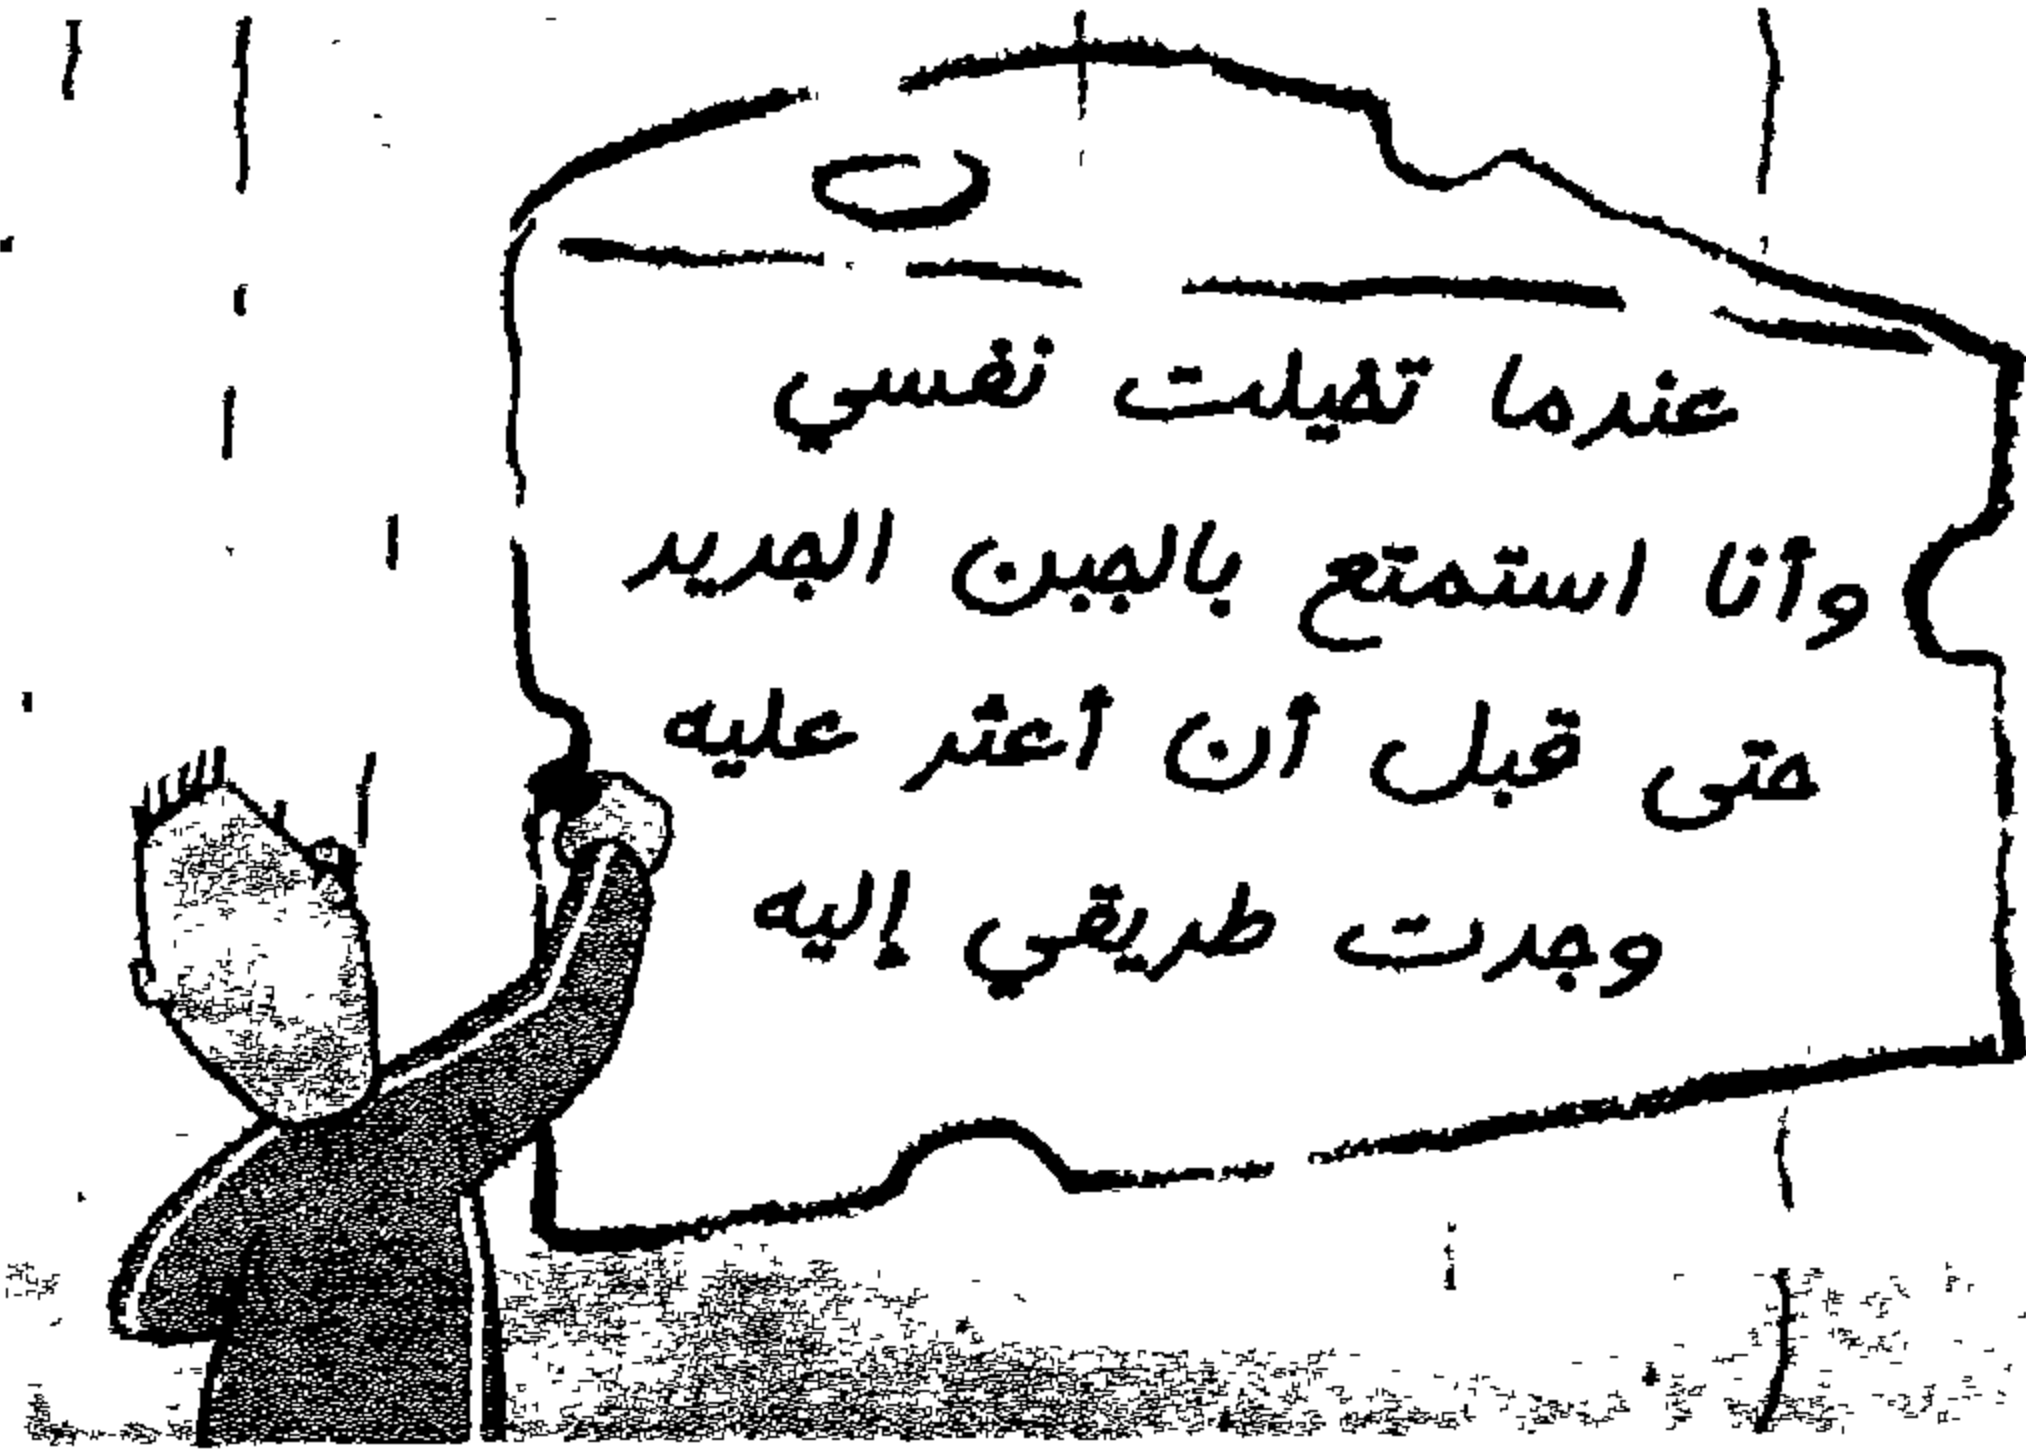 عندما تخيلت نفسي
وأنا استمتع بالجبن الجديد
حتى قبل أن أعثر عليه
وجدت طريقي إليه